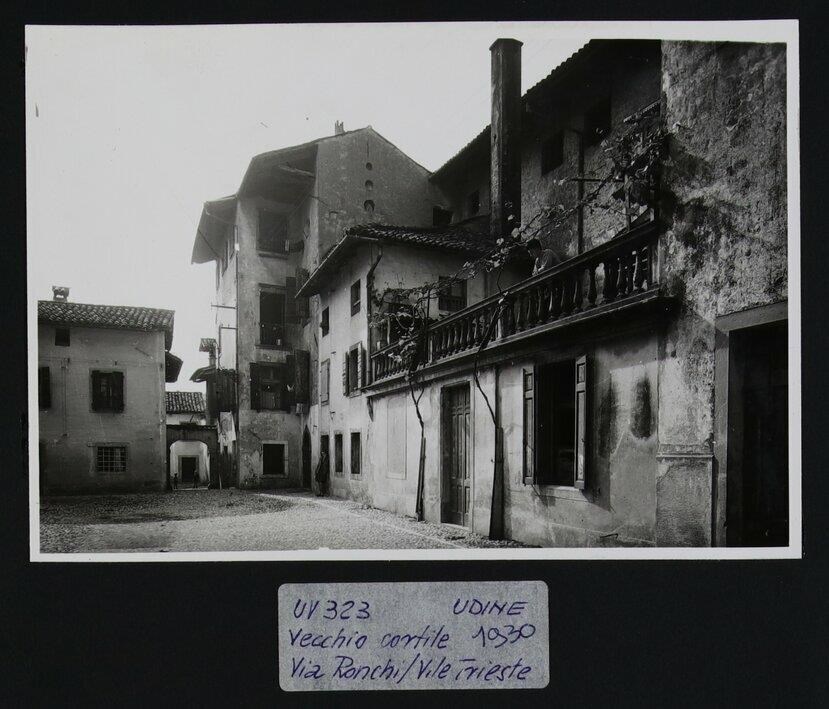 UV323 UDINE
Vecchio cortile 1930
Via Ronchi/Vile Trieste